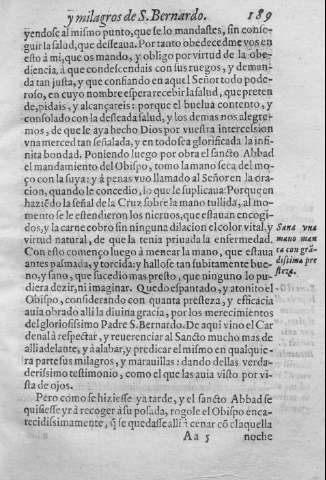 y milagros de S. Bernardo. 189
yendose al mismo punto, que se lo mandastes, sin conse-
guir la salud, que desseaua. Por tanto obedecedme vos en
esto â mi, que os mando, y obligo por virtud de la obe-
diencia, â que condescendais con sus ruegos, y deman-
da tan justa, y que confiando en aquel Señor todo pode-
roso, en cuyo nombre espera recebir la salud, que preten
de, pidais, y alcançareis: porque el buelua contento, y
consolado con la desseada salud, y los demas nos alegre-
mos, de que le aya hecho Dios por vuestra intercession
vna merced tan señalada, y en todo sea glorificada la infi-
nita bondad. Poniendo luego por obra el sancto Abbad
el mandamiento del Obispo, tomo la mano seca del mo-
ço con la suya: y â penas vuo llamado al Señor en la ora-
cion, quando le concedio, lo que le suplicaua: Porque en
haziẽdo la señal de la Cruz sobre la mano tullida, al mo-
mento se le estendieron los nieruos, que estauan encogi-
dos, y la carne cobro sin ninguna dilacion el color vital, y
virtud natural, de que la tenia priuada la enfermedad.
Con esto començo luego â menear la mano, que estaua
antes pasmada, y torcida: y hallose tan subitamente bue-
no, y sano, que sucedio mas presto, que ninguno lo pu-
diera dezir, ni imaginar. Quedo espantado, y atonito el
Obispo, considerando con quanta presteza, y efficacia
auia obrado alli la diuina gracia, por los merecimientos
del gloriosissimo Padre S. Bernardo. De aqui vino el Car
denal â respectar, y reuerenciar al Sancto mucho mas de
alli adelante, y â alabar, y predicar el mismo en qualquie-
ra parte sus milagros, y marauillas: dando dellas verda-
derissimo testimonio, como el que las auia visto por vi-
sta de ojos.
Pero como se hiziesse ya tarde, y el sancto Abbad se
quisiesse yr â recoger â su posada, rogole el Obispo enca-
recidissimamente, q̃ se quedasse alli â cenar cõ el aquella
Aa 5 noche
Sana vna
mano man
ca con grã
dissima pre
steza.